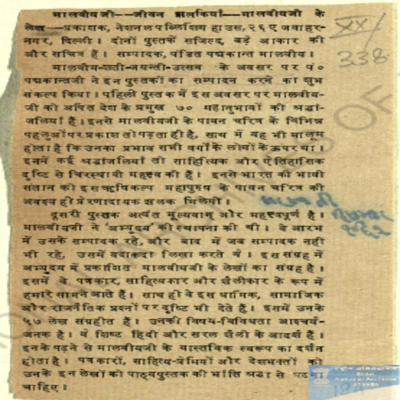 मालवीयजी—जीवन झलकियाँ—मालवीयजी के
लेख—प्रकाशक, नेशनल पब्लिशिंग हाउस, २६ए जवाहर-
नगर, दिल्ली। दोनों पुस्तकें सजिल्द, बड़े आकार की
और सचित्र हैं। सम्पादक, पंडित पद्मकान्त मालवीय।
मालवीय-शती-जयन्ती-उत्सव के अवसर पर पं०
पद्मकान्तजी ने इन पुस्तकों का सम्पादन करने का शुभ
संकल्प किया। पहिली पुस्तक में इस अवसर पर मालवीय-
जी को अर्पित देश के प्रमुख ७० महानुभावों की श्रद्धां-
जलियाँ हैं। इनसे मालवीयजी के पावन चरित्र के विभिन्न
पहलुओं पर प्रकाश तो पड़ता ही है, साथ में यह भी मालूम
होता है कि उनका प्रभाव सभी वर्गों के लोगों के ऊपर था।
इनमें कई श्रद्धांजलियाँ तो साहित्यिक और ऐतिहासिक
दृष्टि से चिरस्थायी महत्त्व की हैं। इनसे भारत की भावी
संतान को इस ऋषिकल्प महापुरुष के पावन चरित्र की
अवश्य ही प्रेरणादायक झलक मिलेगी।
दूसरी पुस्तक अत्यंत मूल्यवान् और महत्त्वपूर्ण है।
मालवीयजी ने 'अभ्युदय' की स्थापना की थी। वे आरंभ
में उसके सम्पादक रहे, और बाद में जब सम्पादक नहीं
भी रहे, उसमें यदाकदा लिखा करते थे। इस संग्रह में
अभ्युदय में प्रकाशित मालवीयजी के लेखों का संग्रह है।
इसमें वे पत्रकार, साहित्यकार और शैलीकार के रूप में
हमारे सामने आते हैं। साथ ही वे इस धार्मिक, सामाजिक
और राजनैतिक प्रश्नों पर दृष्टि भी देते हैं। इसमें उनके
५७ लेख संग्रहीत हैं। उनकी विषय-विविधता आश्चर्य-
जनक है। वे शिष्ट हिंदी और सरल शैली के आदर्श हैं।
इनके पढ़ने से मालवीयजी के वास्तविक स्वरूप का दर्शन
होता है। पत्रकारों, साहित्य-प्रेमियों और देशभक्तों को
उनके इन लेखों को पाठ्यपुस्तक की भाँति श्रद्धा से पढ़ना
चाहिए।
XX/
338